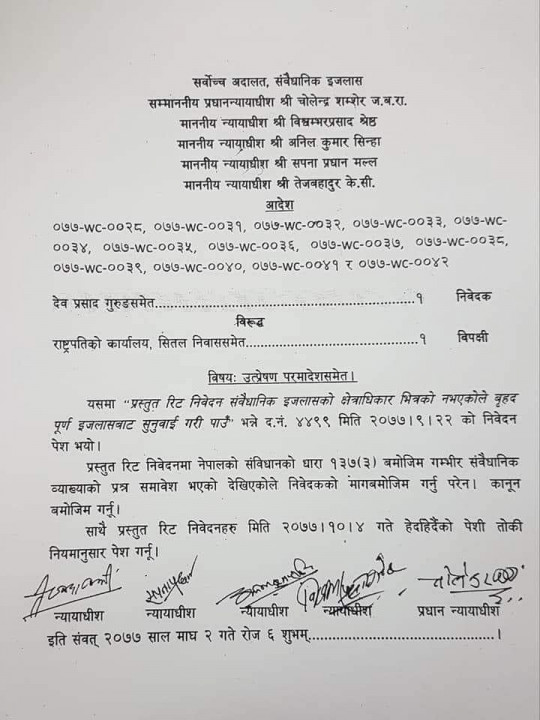 सर्वोच्च अदालत, संवैधानिक इजलास
सम्माननीय प्रधानन्यायाधीश श्री चोलेन्द्र शम्शेर ज.ब.रा.
माननीय न्यायाधीश श्री विश्वम्भरप्रसाद श्रेष्ठ
माननीय न्यायाधीश श्री अनिल कुमार सिन्हा
माननीय न्यायाधीश श्री सपना प्रधान मल्ल
माननीय न्यायाधीश श्री तेजबहादुर के.सी.
आदेश
०७७-WC-००२८, ०७७-WC-००३१, ०७७-WC-००३२, ०७७-WC-००३३, ०७७-WC-
००३४, ०७७-WC-००३५, ०७७-WC-००३६, ०७७-WC-००३७, ०७७-WC-००३८,
०७७-WC-००३९, ०७७-WC-००४०, ०७७-WC-००४१ र ०७७-WC-००४२
देव प्रसाद गुरुङसमेत.......................................................१ निवेदक
विरूद्ध
राष्ट्रपतिको कार्यालय, सितल निवाससमेत.....................................१ विपक्षी
विषयः उत्प्रेषण परमादेशसमेत।
यसमा "प्रस्तुत रिट निवेदन संवैधानिक इजलासको क्षेत्राधिकार भित्रको नभएकोले बृहद
पूर्ण इजलासबाट सुनुवाई गरी पाउँ" भन्ने द.नं. ४४९९ मिति २०७७।९।२२ को निवेदन
पेश भयो।
प्रस्तुत रिट निवेदनमा नेपालको संविधानको धारा १३७(३) बमोजिम गम्भीर संवैधानिक
व्याख्याको प्रश्न समावेश भएको देखिएकोले निवेदकको मागबमोजिम गर्नु परेन। कानून
बमोजिम गर्नू।
साथै प्रस्तुत रिट निवेदनहरु मिति २०७७।१०।४ गते हेर्दाहेर्दैको पेशी तोकी
नियमानुसार पेश गर्नू।
न्यायाधीश न्यायाधीश न्यायाधीश न्यायाधीश प्रधान न्यायाधीश
इति संवत् २०७७ साल माघ २ गते रोज ६ शुभम्.......................................।